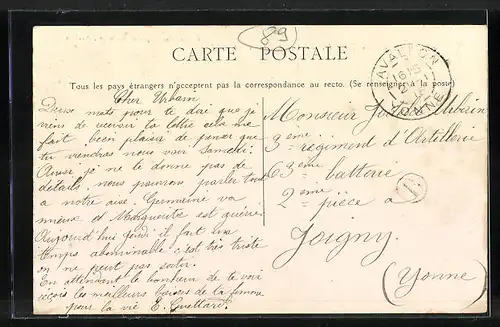 89
CARTE POSTALE
Tous les pays étrangers n'acceptent pas la correspondance au recto. (Se renseigner à la poste)
AVALLON
YONNE
Cher Urbain
Deux mots pour te dire que je
viens de recevoir ta lettre cela me
fait bien plaisir de penser que
tu viendras nous voir Samedi.
Aussi je ne te donne pas de
détails, nous pourrons parler tout
a notre aise. Germaine va
mieux et Marguerite est guérie.
Aujourd'hui jeudi il fait une
temps abominable c'est très triste
on ne peut pas sortir.
En attendant le bonheur de te voir
reçois les meilleurs baisers de ta femme
pour la vie E. Guettard
Monsieur Urbain
3ème régiment d'Artillerie
63ème batterie
2ème pièce a
Joigny
(Yonne)